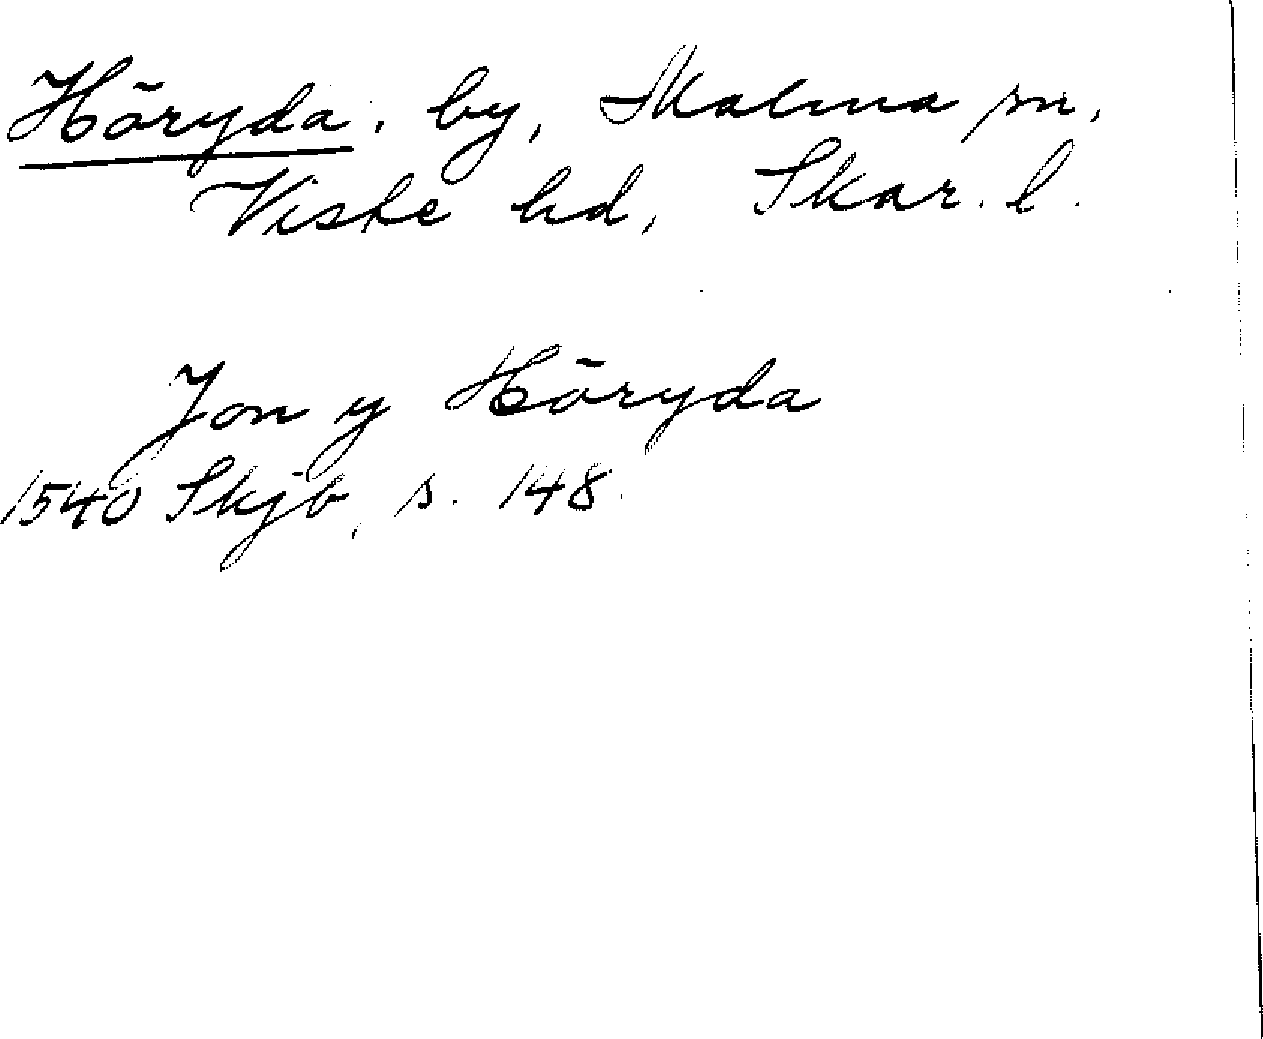 Höryda, by, Skalma sn,
Viste hd, Skar. l.
Jon y Höryda
1540 Skjb, s. 148.